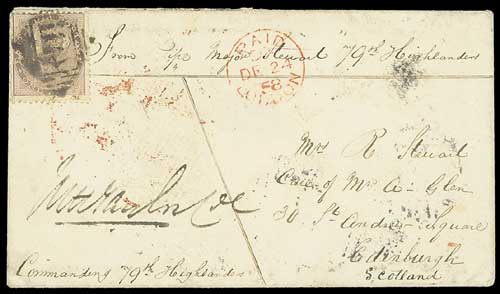 From Pipe Major Stewart 79th Highlanders
PAID
DE 24
58
LONDON
Mrs R Stewart
Care of Mr A. Glen
30 St Andrew Square
Edinburgh
Scotland
Commanding 79th Highlanders